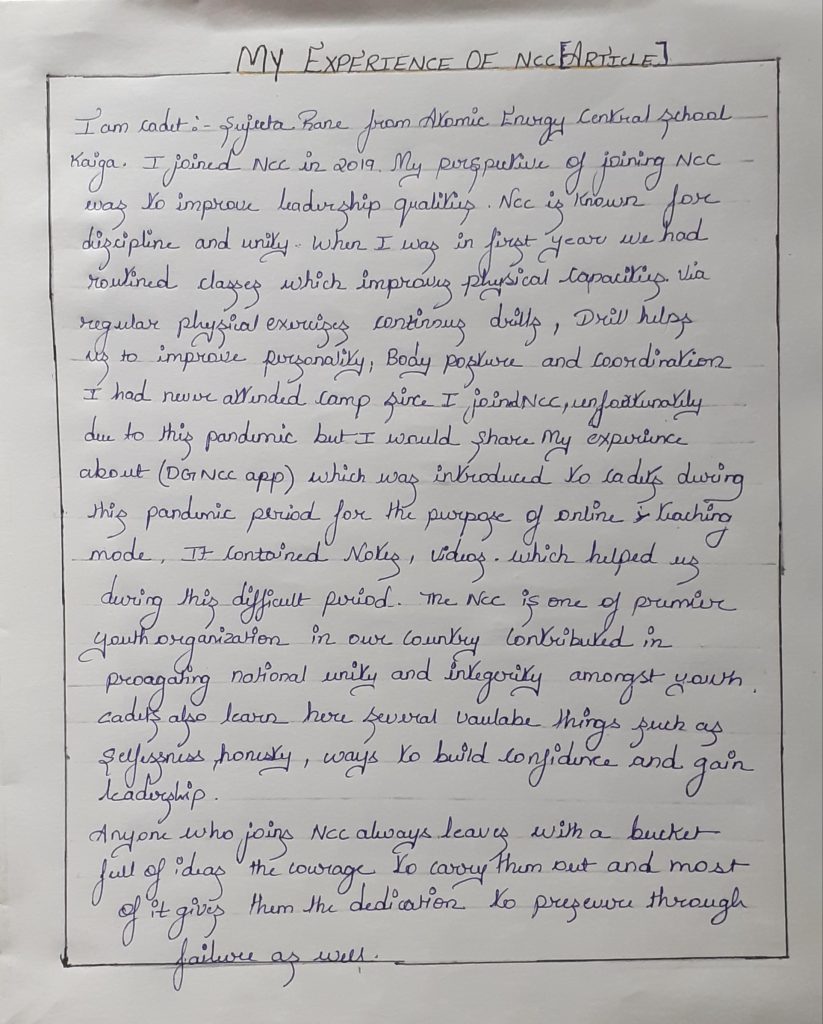 MY EXPERIENCE OF NCC[ARTICLE]
I am cadet:- Sujeeta Rane from Atomic Energy Central School
Kaiga. I joined NCC in 2019. My perspective of joining NCC
was to improve leadership qualities. NCC is known for
discipline and unity. When I was in first year we had
routined classes which improves physical capacities. Via
regular physical exercises continous drills, Drill helps
us to improve personality, Body posture and coordination
I had never attended camp since I joindNCC, unfoatunately
due to this pandemic but I would share My experience
about (DGNCC app) which was introduced to cadets during
this pandemic period for the purpose of online & teaching
mode. It contained Notes, videos. which helped us
during this difficult period. The NCC is one of premier
youth organization in our country contributed in
proagating national unity and integerity amongst youth.
cadets also learn here several vaulabe things such as
selfessness, honesty, ways to build confidence and gain
leadership.
Anyone who joins NCC always leaves with a bucket
full of ideas the courage to carry them out and most
of it gives them the dedication to preseuve through
failure as well.